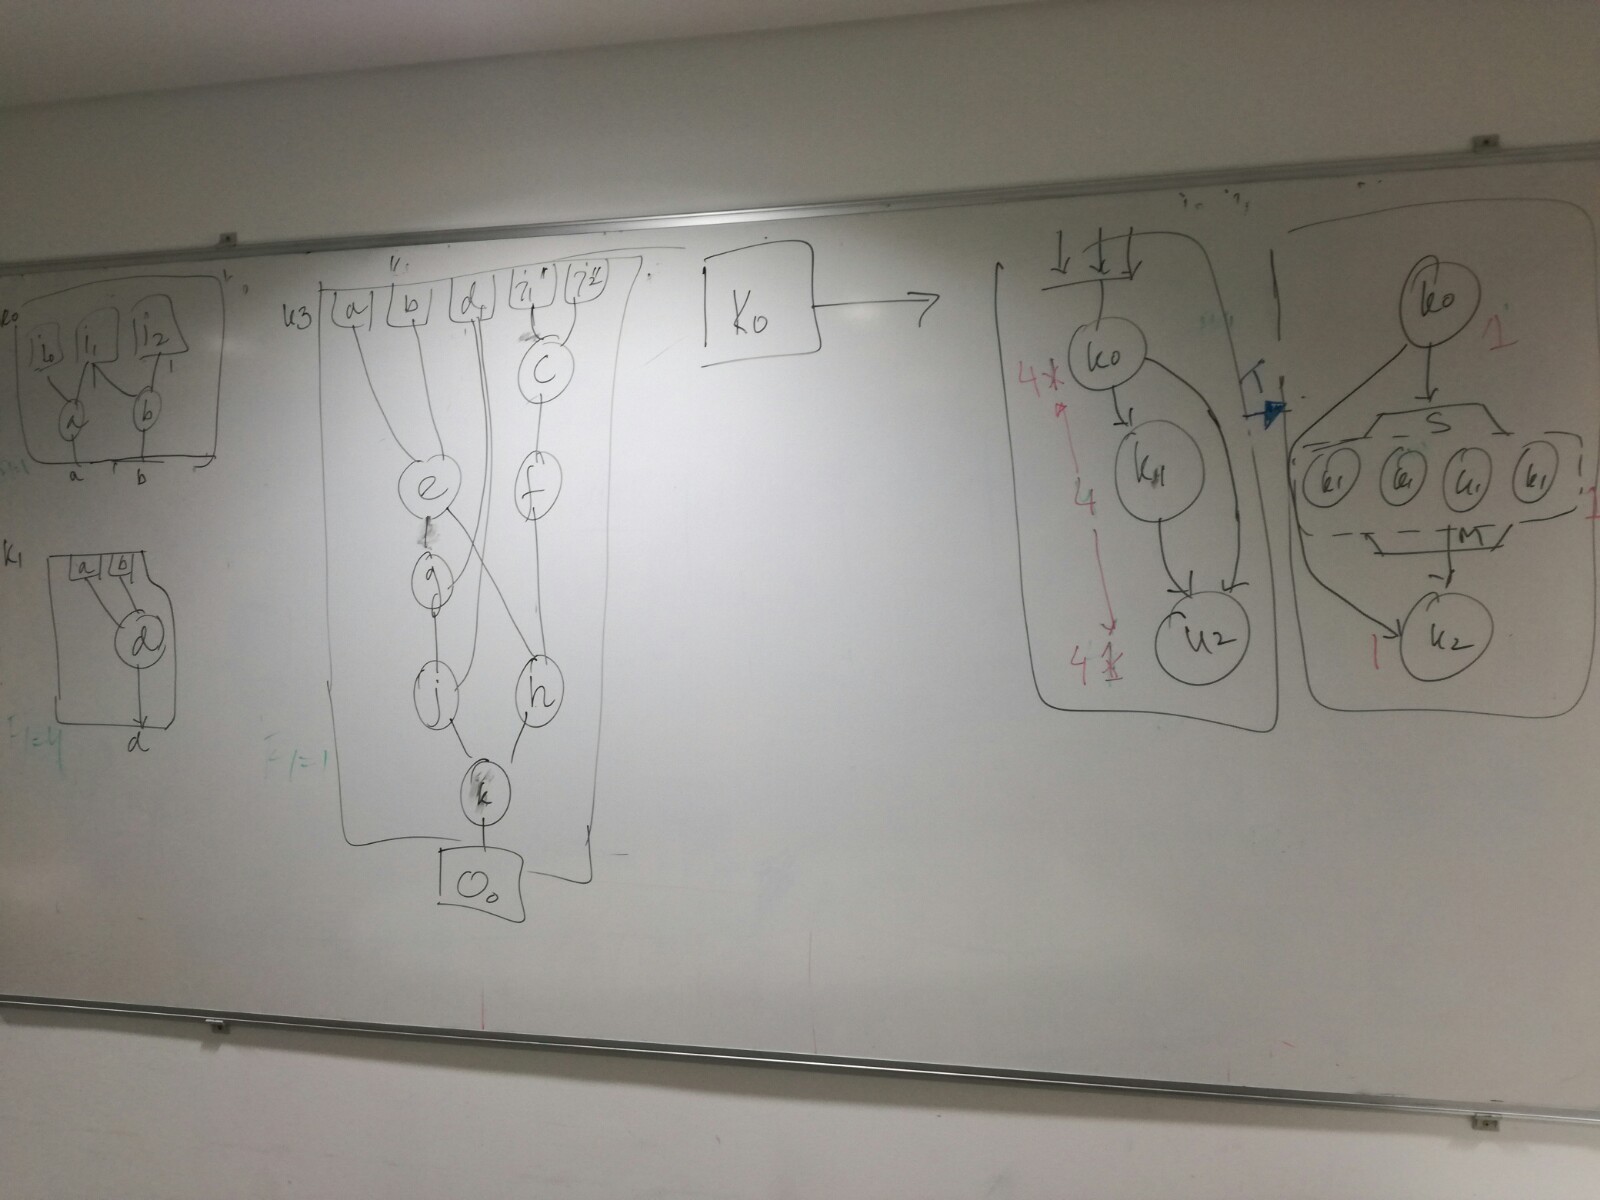 k0
i0 i1 i2
a b
a b
k1
a b
d
d
F1=4
k3
a b d i1 i2
c
e f
g
j h
k
F1=1
O0
K0
k0
4*
k1
4
k2
4*
T
k0
1
S
k1 k1 k1 k1
1
M
k2
1